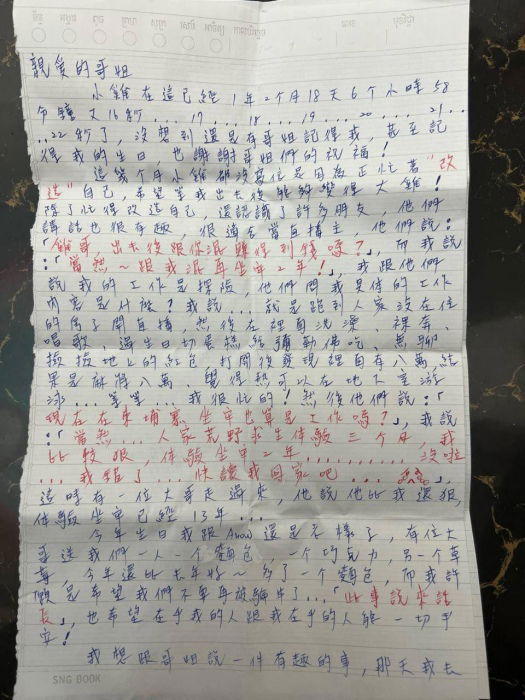 親愛的哥姐
小雞在這已經 1年2个月18天6个小時58
分鐘又16秒....17......18......19......20......21...
...22秒了，沒想到還是有哥姐記得我，甚至記
得我的生日，也謝謝哥姐們的祝福！
這幾个月小雞都沒寫信是因為正忙著"改
造"自己，希望等我出去後能夠變得大雞！
除了忙得改造自己，還認識了許多朋友，他們
講話也很有趣，很適合當直播主，他們說：
「雞哥，出去後跟你混賺得到錢嗎？」，而我說
：「當然～跟我混再坐牢2年！」，我跟他們
說我的工作是探險，他們問我具体的工作
內容是什麼？我說....就是跑到人家沒在住
的房子開直播，然後在裡面洗澡、裸奔、
唱歌，過生日切蛋糕給彌勒佛吃、無聊
撿撿地上的紅包，打開後發現裡面有八萬，結
果是麻將八萬、覺得熱可以在地下室游
泳...等等...我很忙的！然後他們說：「
現在在柬埔寨坐牢也算是工作嗎？」，我說
：「當然...人家荒野求生体驗三个月，我
比較狠，体驗坐牢2年..........沒啦
...我錯了...快讓我回家吧...」，
這時有一位大哥走過來，他說他比我還狠，
体驗坐牢已經13年...
今年生日我跟Anow還是老樣子，有位大
哥送我們一人一个麵包，一个巧克力，另一个草
莓，今年還比去年好～多了一个麵包，而我許
願是希望我們不要再被騙牢了...「此事說來話
長」，也希望在乎我的人跟我在乎的人能一切平
安！
我想跟哥姐說一件有趣的事，那天我去
SNG BOOK